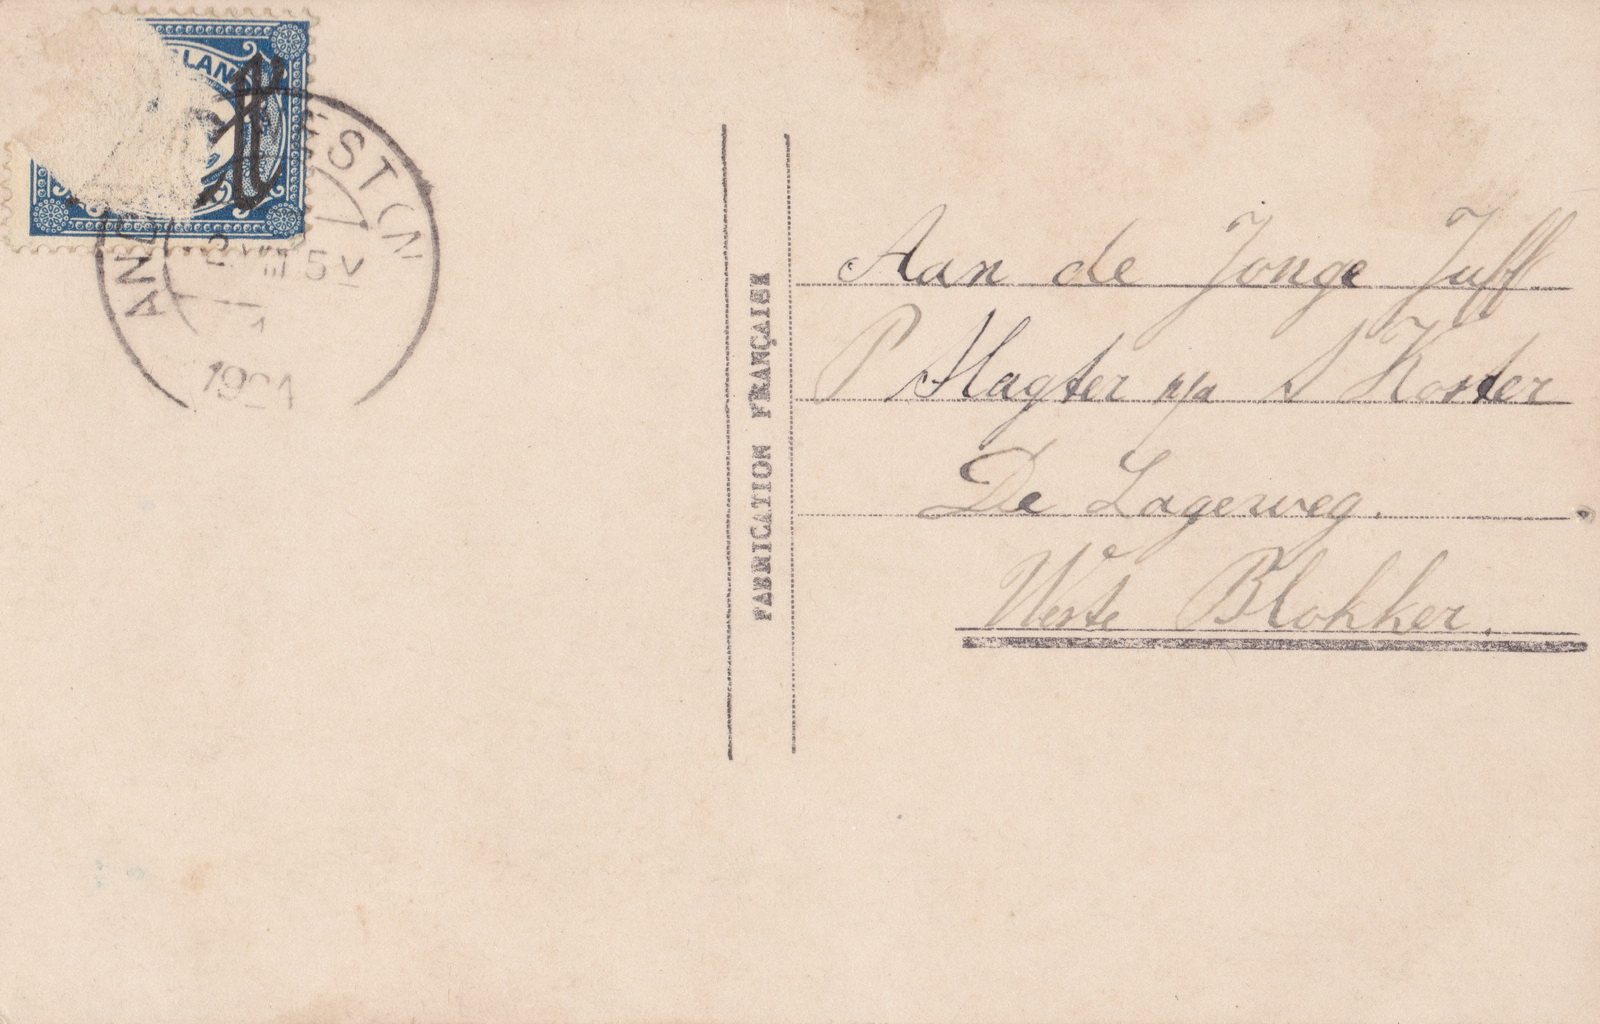 LAN
AND ESTON
5V
19 1
FABRICATION FRANÇAISE
Aan de Jonge Juff
P Slagter p/a S Koster
De Lagerweg.
Weste Blokker.